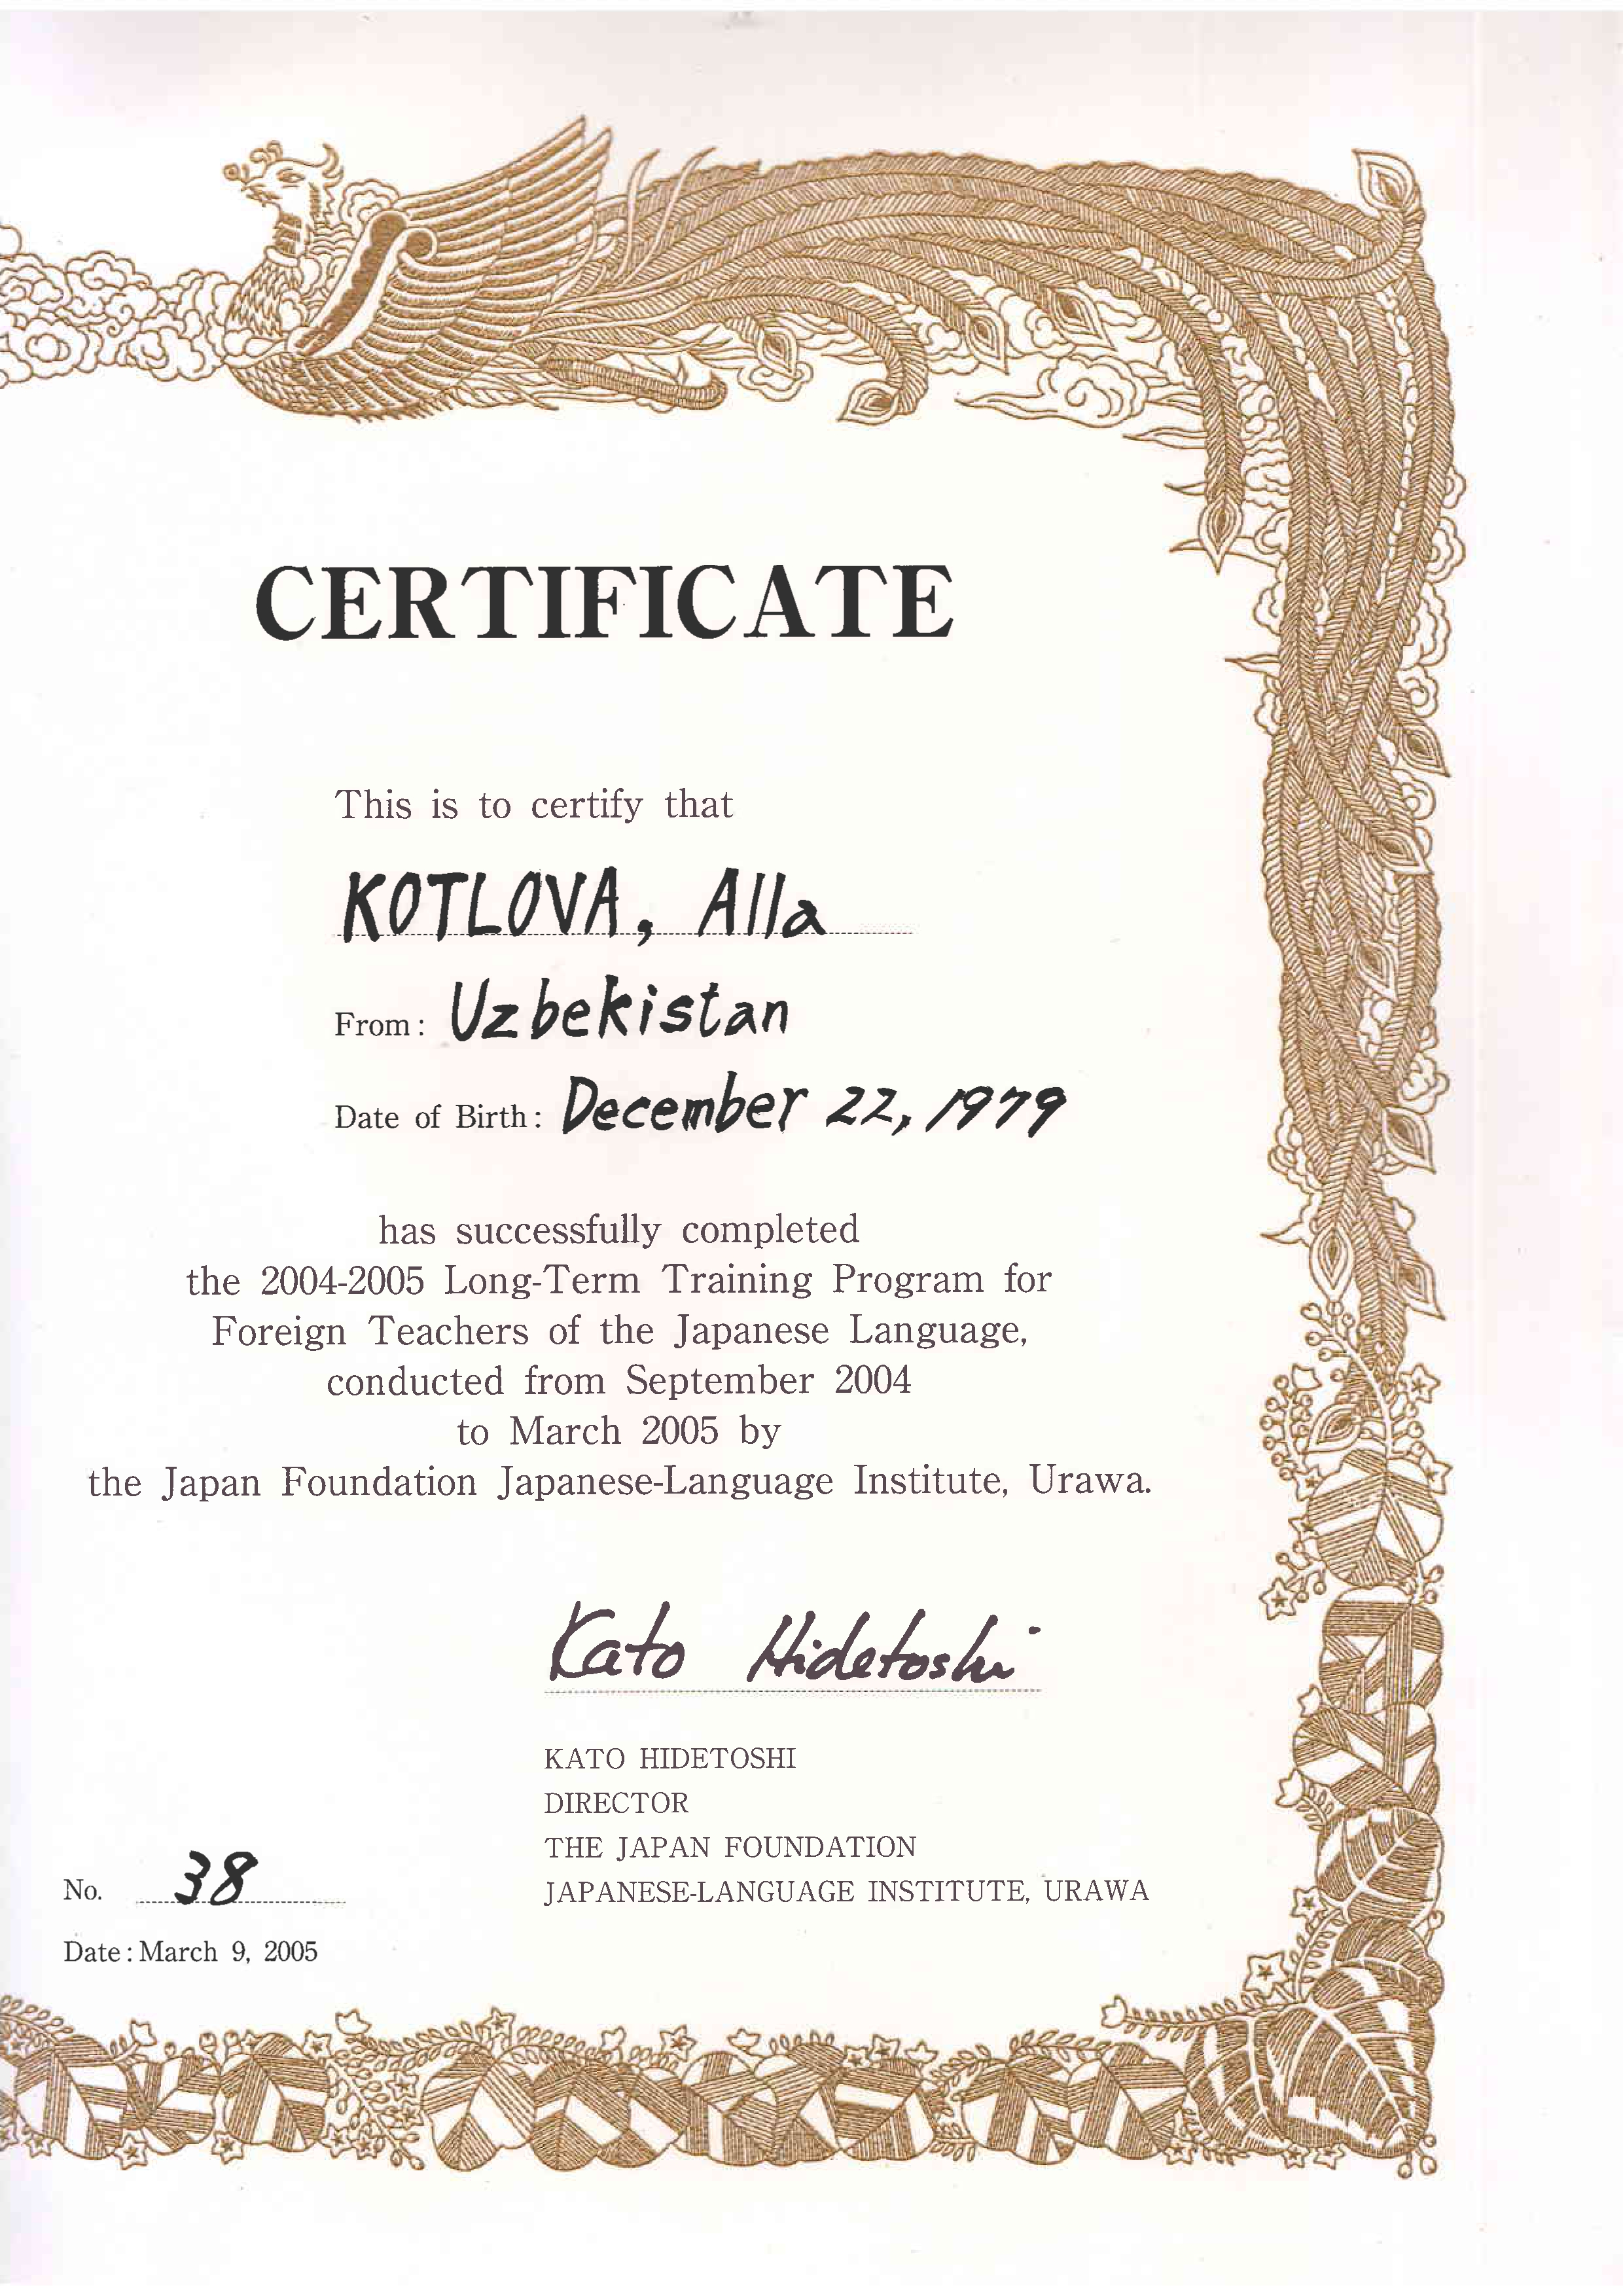 CERTIFICATE
This is to certify that
KOTLOVA, Alla
From: Uzbekistan
Date of Birth: December 22, 1979
has successfully completed
the 2004-2005 Long-Term Training Program for
Foreign Teachers of the Japanese Language,
conducted from September 2004
to March 2005 by
the Japan Foundation Japanese-Language Institute, Urawa.
Kato Hidetoshi
KATO HIDETOSHI
DIRECTOR
THE JAPAN FOUNDATION
JAPANESE-LANGUAGE INSTITUTE, URAWA
No. 38
Date: March 9, 2005